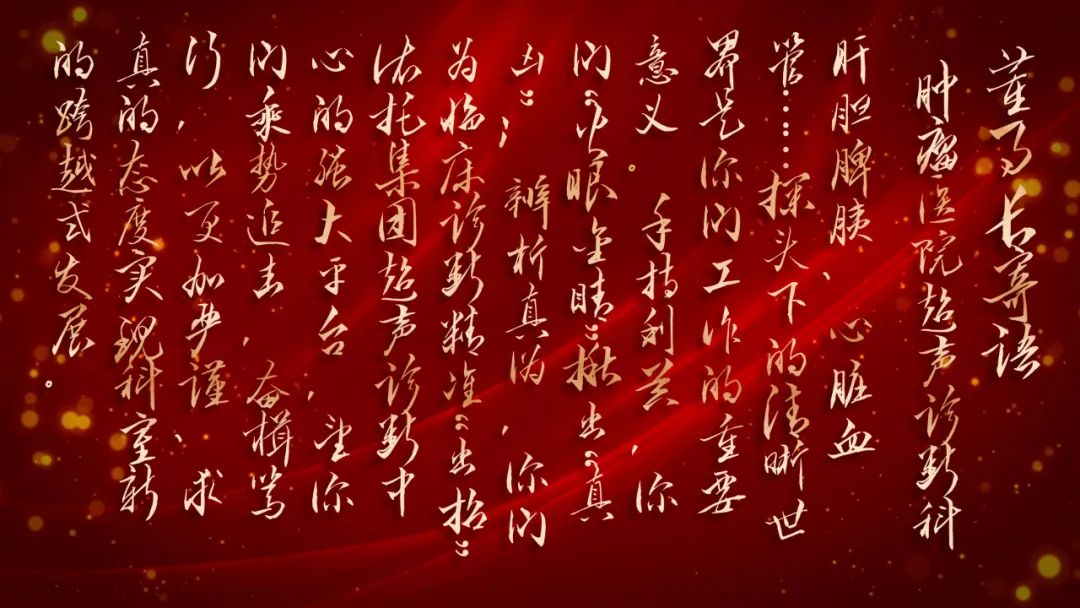 董事长寄语
肿瘤医院超声诊断科
肝胆脾胰、心脏血
管……探头下的清晰世
界是你们工作的重要
意义。手持利器，你
们“火眼金睛”揪出“真
凶”，辨析真伪，你们
为临床诊断精准“出招”
依托集团超声诊断中
心的强大平台，望你
们乘势追击，奋楫笃
行，以更加严谨、求
真的态度实现科室新
的跨越式发展。